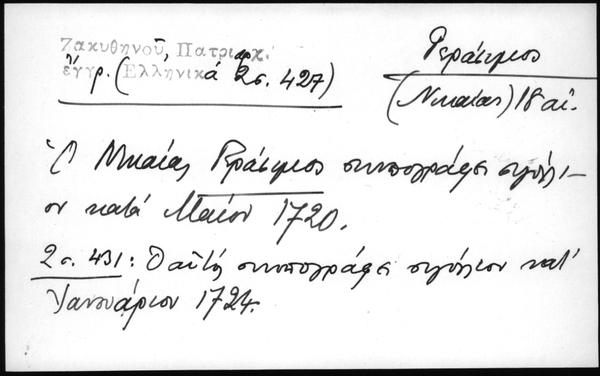 Ζακυθηνοῦ, Πατριαρχ.
ἔγγρ. (Ἑλληνικά 2 σ. 427)
Γεράσιμος
(Νικαίας) 18 αἰ.
Ὁ Νικαίας Γεράσιμος συνυπογράφει σιγίλλι-
ον κατά Μαΐον 1720.
2 σ. 431: Ὁ αὐτός συνυπογράφει σιγίλλιον κατ'
Ἰανουάριον 1724.